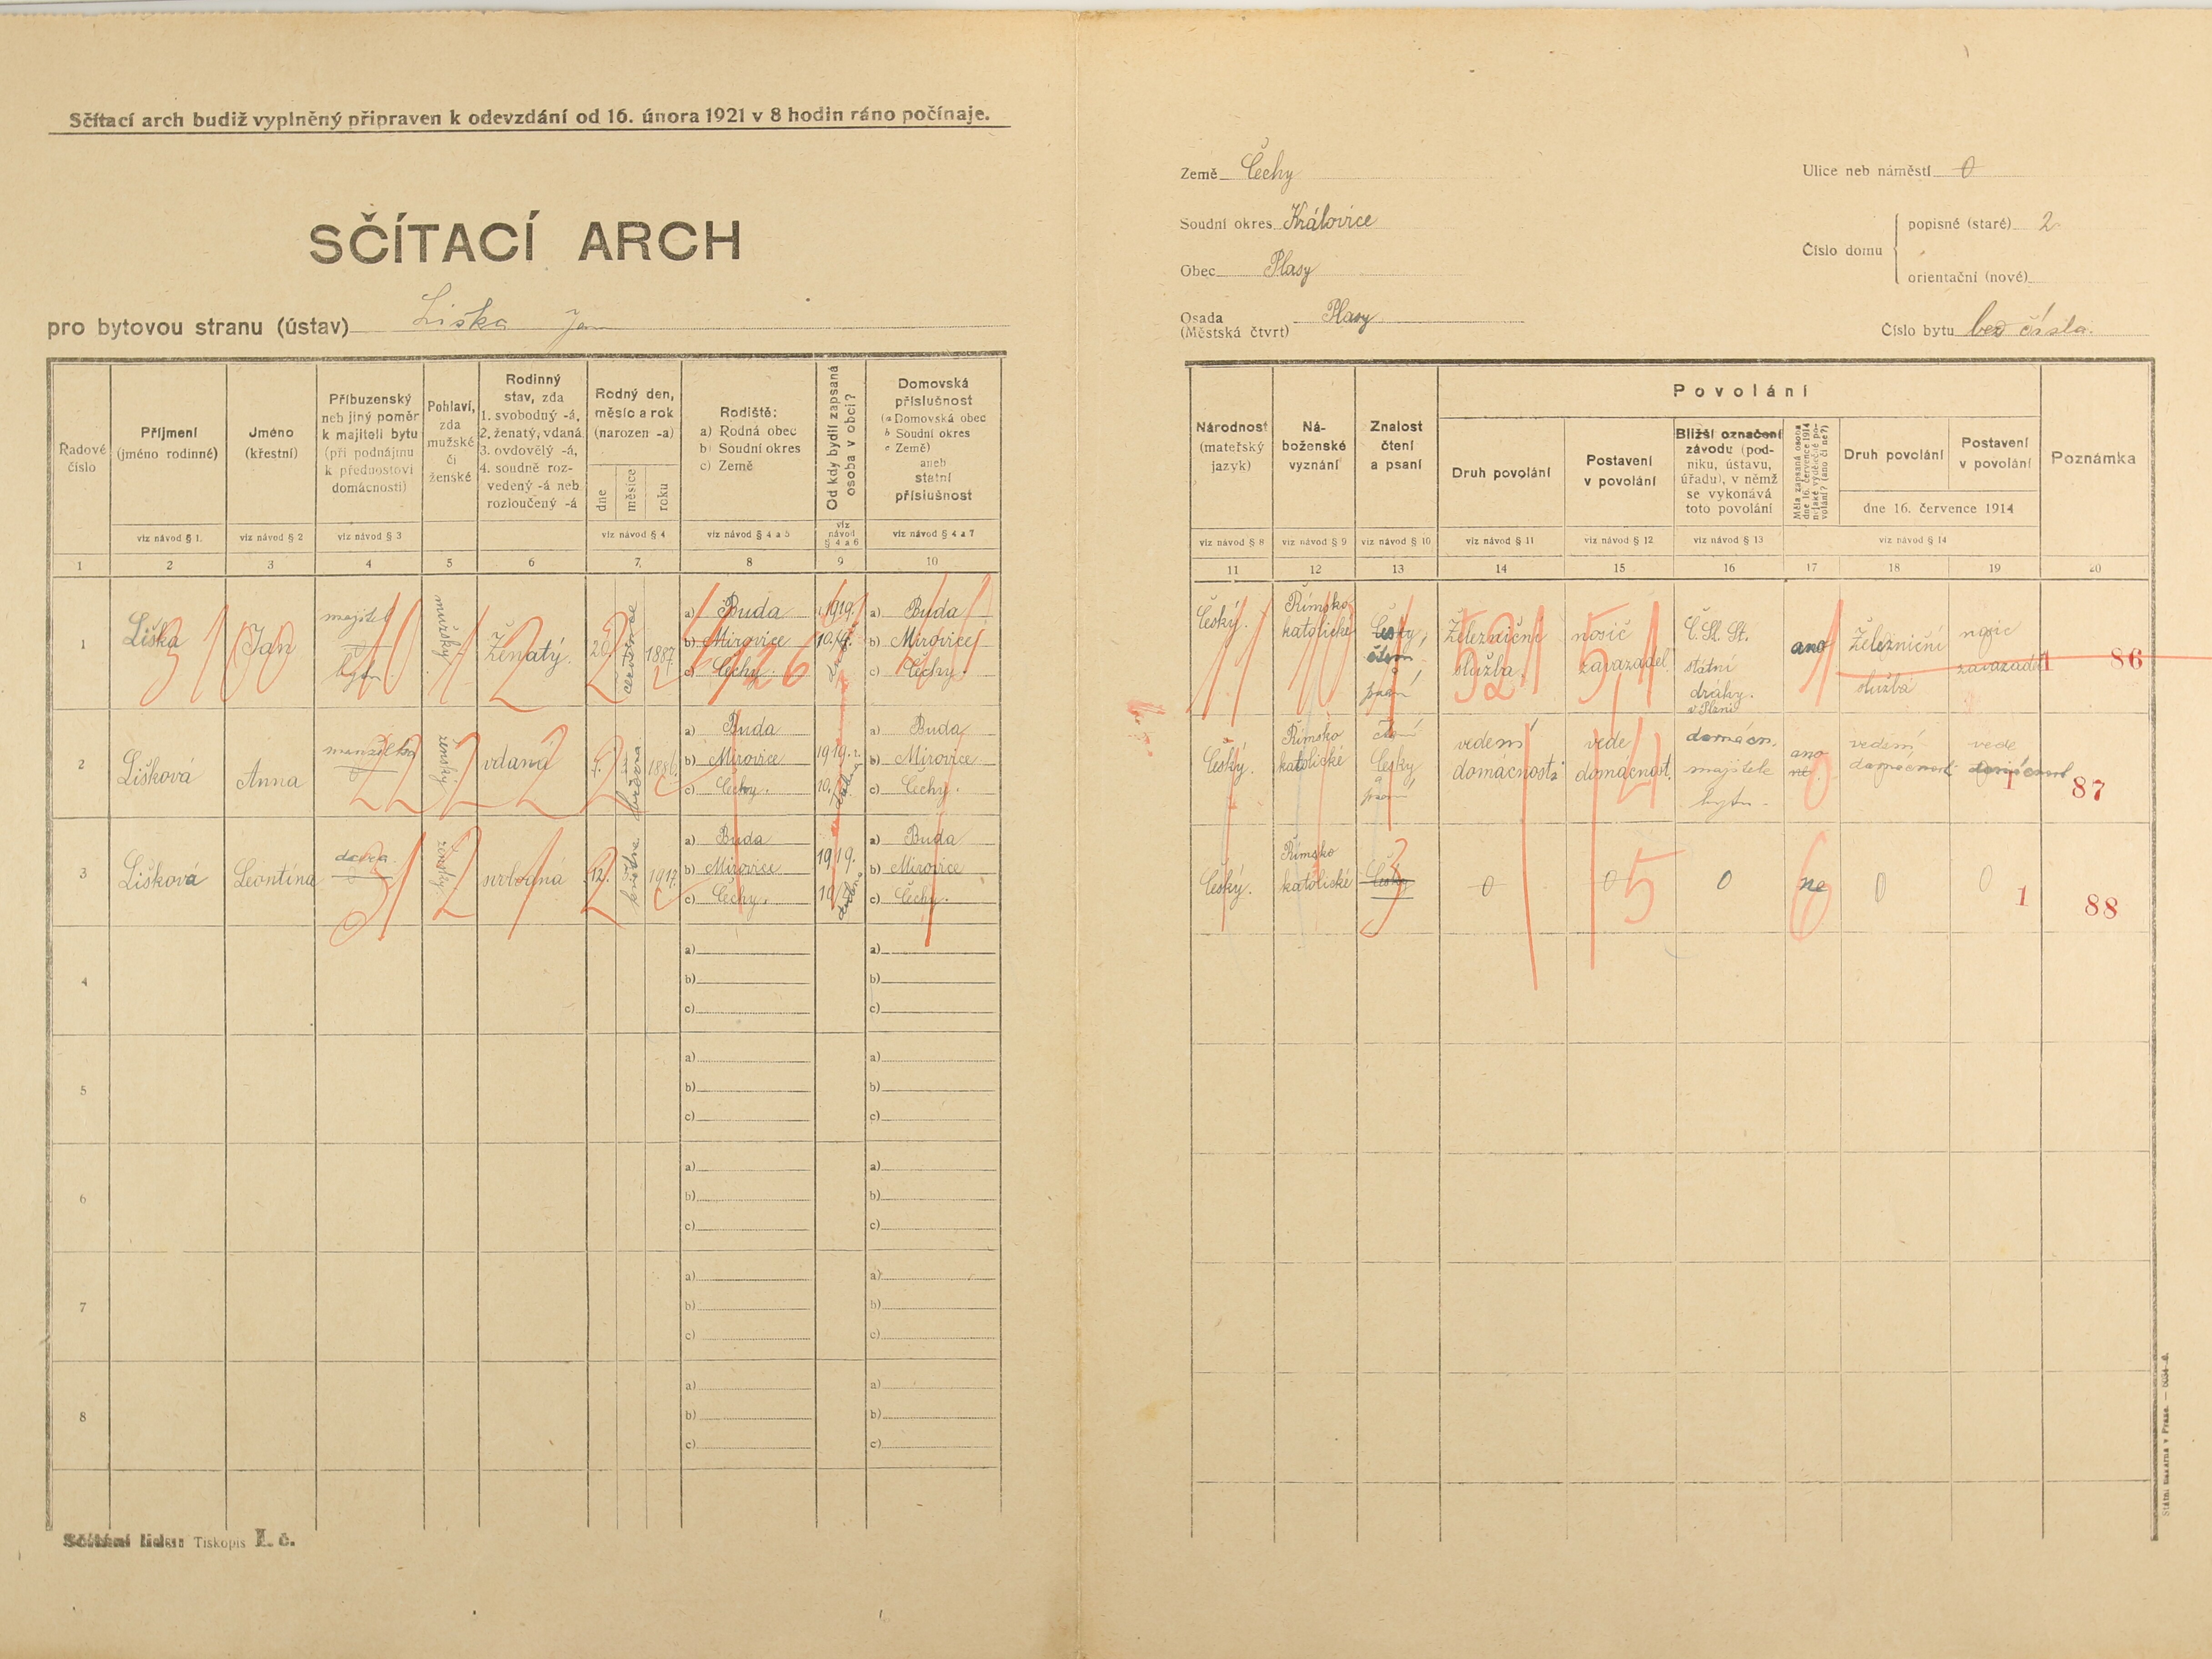 Sčítací arch budiž vyplněný připraven k odevzdání od 16. února 1921 v 8 hodin ráno počínaje.
SČÍTACÍ ARCH
pro bytovou stranu (ústav) Liška Jan
Země Čechy
Soudní okres Královice
Obec Plasy
Osada Plasy
(Městská čtvrt)
Ulice neb náměstí 0
Číslo domu
popisné (staré) 2
orientační (nové)
Číslo bytu bez čísla.
Řadové číslo
Příjmení (jméno rodinné)
viz návod § 1.
Jméno (křestní)
viz návod § 2
Příbuzenský neb jiný poměr k majiteli bytu (při podnájmu k přednostovi domácnosti)
viz návod § 3
Pohlaví, zda mužské či ženské
Rodinný stav, zda
1. svobodný -á,
2. ženatý, vdaná
3. ovdovělý -á,
4. soudně rozvedený -á neb rozloučený -á
Rodný den, měsíc a rok (narozen -a)
dne
měsíce
roku
viz návod § 4
Rodiště:
a) Rodná obec
b) Soudní okres
c) Země
viz návod § 4 a 5
Od kdy bydlí zapsaná osoba v obci?
viz návod § 4 a 6
Domovská příslušnost
(a Domovská obec
b Soudní okres
c Země)
aneb
statní příslušnost
viz návod § 4 a 7
1 2 3 4 5 6 7 8 9 10
1 Liška Jan majitel bytu mužský Ženatý. 20. července 1887
a) Buda
b) Mirovice
c) Čechy.
1919.
10.
a) Buda
b) Mirovice
c) Čechy.
2 Lišková Anna manželka ženský vdaná března 1886.
a) Buda
b) Mirovice
c) Čechy.
1919.
10.
a) Buda
b) Mirovice
c) Čechy.
3 Lišková Leontina dcera ženský svobodná 12. 1917.
a) Buda
b) Mirovice
c) Čechy.
1919.
10
a) Buda
b) Mirovice
c) Čechy.
4
a)
b)
c)
a)
b)
c)
5
a)
b)
c)
a)
b)
c)
6
a)
b)
c)
a)
b)
c)
7
a)
b)
c)
a)
b)
c)
8
a)
b)
c)
a)
b)
c)
Sčítání lidu: Tiskopis I. č.
Národnost (mateřský jazyk)
viz návod § 8
Náboženské vyznání
viz návod § 9
Znalost čtení a psaní
viz návod § 10
Povolání
Druh povolání
viz návod § 11
Postavení v povolání
viz návod § 12
Bližší označení závodu (podniku, ústavu, úřadu), v němž se vykonává toto povolání
viz návod § 13
Měla zapsaná osoba dne 16. července 1914 nějaké výdělečné povolání? (ano či ne?)
Druh povolání
Postavení v povolání
dne 16. července 1914
viz návod § 14
Poznámka
11 12 13 14 15 16 17 18 19 20
Český. Římsko katolické Česky, čtení psaní Železniční služba. nosič zavazadel. Č. Sl. St. státní dráhy. v Plzni ano Železniční služba nosič zavazadel 1 86
Český. Římsko katolické čtení Česky a psaní vedení domácnosti vede domácnost. domácn. majitele bytu. ano ne. vedení domácnosti vede domácnost 1 87
Český. Římsko katolické Česky 0 0 0 ne 0 0 1 88